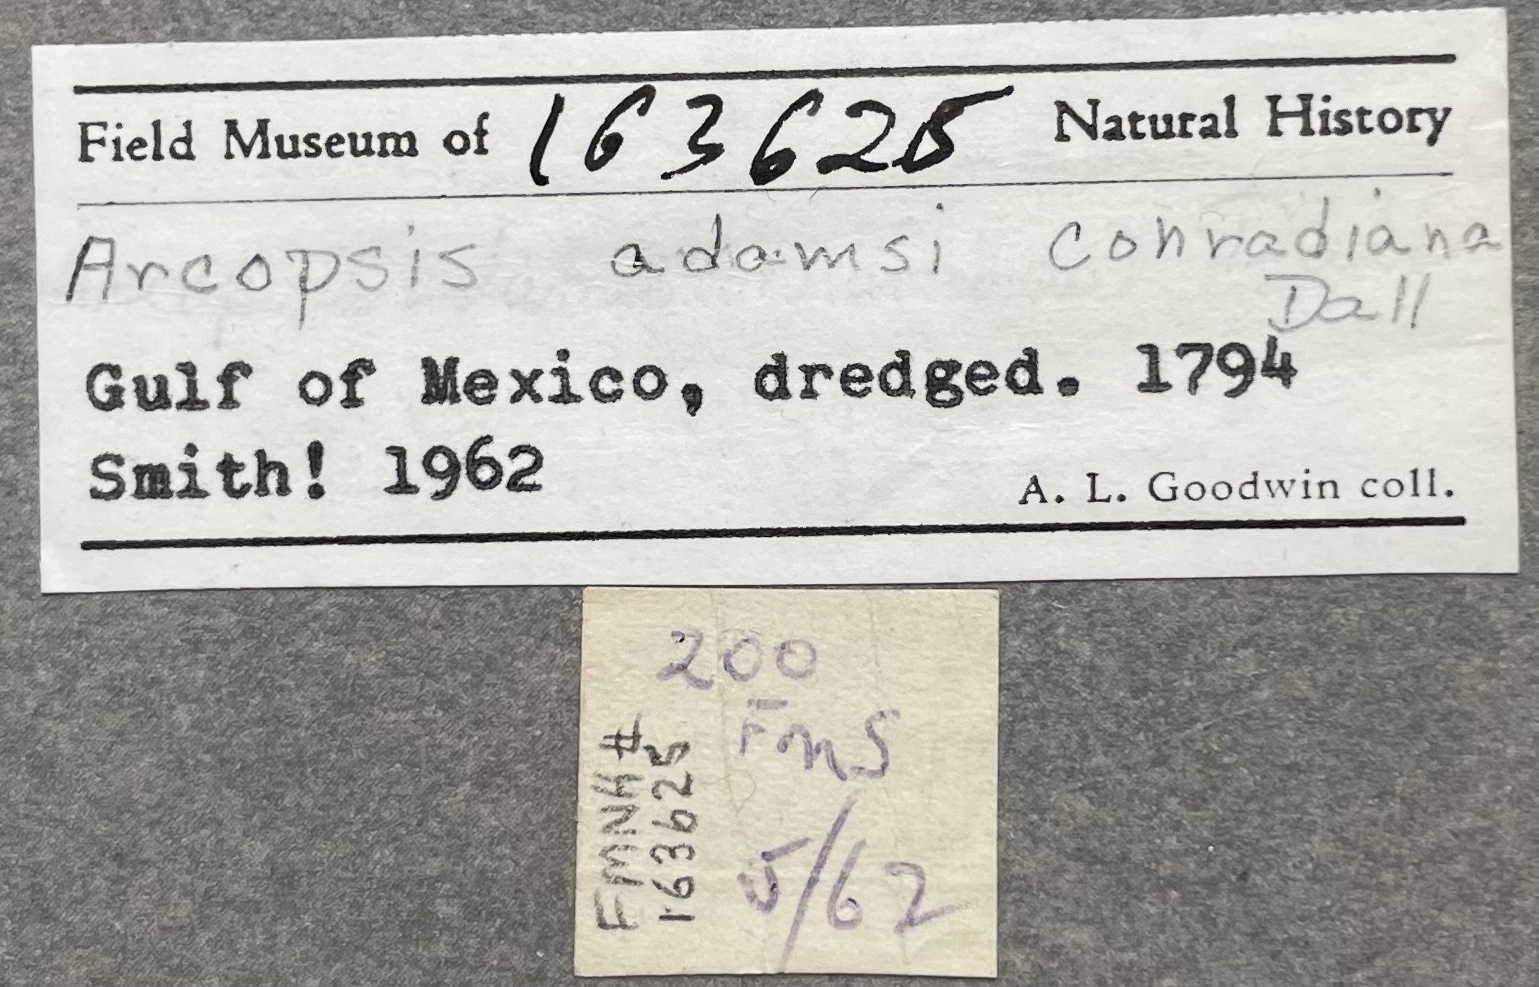 Field Museum of 163625 Natural History
Arcopsis adamsi conradiana
Dall
Gulf of Mexico, dredged. 1794
Smith! 1962
A. L. Goodwin coll.
200
Fms
5/62
FMNH#
163625